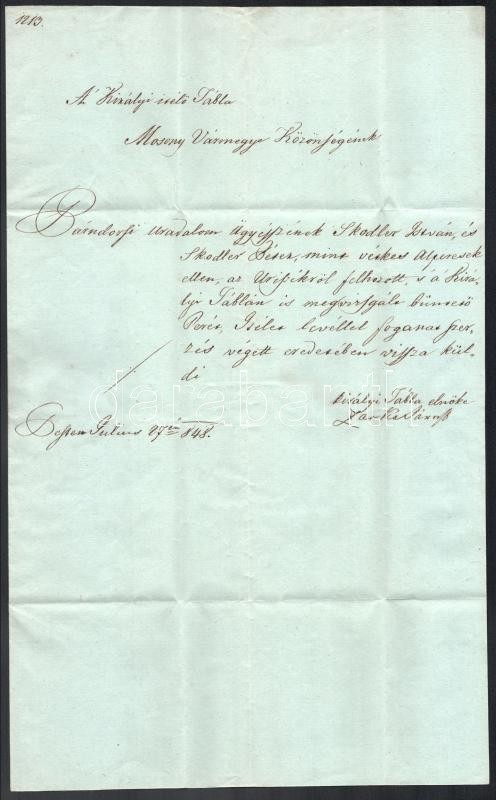 1213.
A' Királyi itélő Tábla
Mosony Vármegye Közönségének
Bárndorfi uradalom Ügyészének Skodler István, és
Skodler Péter, mint vétkes Alperesek
ellen, az Uriszékről felhozott, 's a' Kirá-
lyi Táblán is megvizsgált büntető
Perét, Itélet levéllel foganat szer-
zés végett eredetében vissza kül-
di
királyi Tábla elnöke
Pesten Julius 27én 848.
darabanth